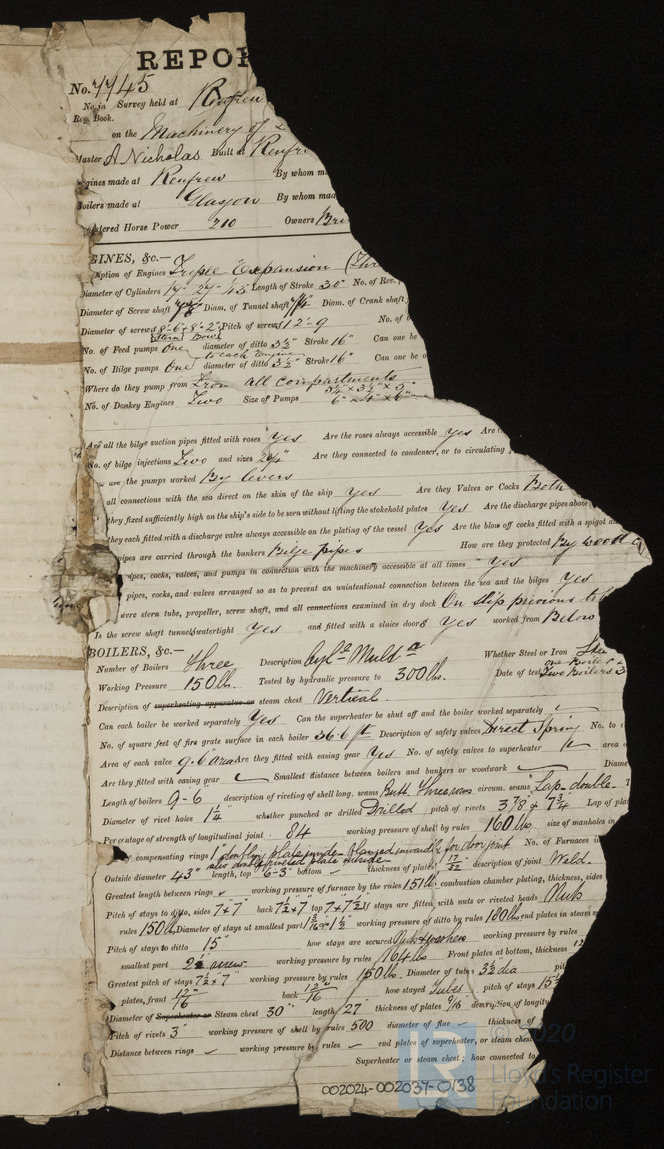 REPOR
No. 7745
No. in Survey held at Renfrew
Reg. Book.
on the Machinery of
Master A Nicholas Built at Renfr
gines made at Renfrew By whom m
oilers made at Glasgow By whom mad
stered Horse Power 210 Owners Bri
GINES, &c.—
ription of Engines Triple Expansion (Thr
Diameter of Cylinders 17" 27" 43" Length of Stroke 30" No. of Rev.
Diameter of Screw shaft Diam. of Tunnel shaft 7¼" Diam. of Crank shaft
Diameter of screws 8'-6" & 8'-2" Pitch of screws 12'-9 No. of b
Stern Bow
No. of Feed pumps One diameter of ditto 3½" Stroke 16" Can one be
to each Engine
No. of Bilge pumps One diameter of ditto 3½" Stroke 16" Can one be o
Where do they pump from From all compartments
No. of Donkey Engines Two Size of Pumps 6" x 4" x 6"
Are all the bilge suction pipes fitted with roses Yes Are the roses always accessible Yes Are t
No. of bilge injections Two and sizes Are they connected to condenser, or to circulating
ow are the pumps worked By levers
all connections with the sea direct on the skin of the ship Yes Are they Valves or Cocks Both
they fixed sufficiently high on the ship's side to be seen without lifting the stokehold plates Yes Are the discharge pipes above
they each fitted with a discharge valve always accessible on the plating of the vessel Yes Are the blow off cocks fitted with a spigot a
pipes are carried through the bunkers Bilge pipes How are they protected By wood c
pipes, cocks, valves, and pumps in connection with the machinery accessible at all times Yes
pipes, cocks, and valves arranged so as to prevent an unintentional connection between the sea and the bilges Yes
were stern tube, propeller, screw shaft, and all connections examined in dry dock On slip previous to
Is the screw shaft tunnel watertight Yes and fitted with a sluice door Yes worked from Below
BOILERS, &c.—
Number of Boilers three Description Cyl.l Mult.r Whether Steel or Iron Stee
one Boiler
Working Pressure 150 lb. Tested by hydraulic pressure to 300 lbs. Date of test Two Boilers 3
Description of superheating apparatus or steam chest Vertical.
Can each boiler be worked separately Yes Can the superheater be shut off and the boiler worked separately
No. of square feet of fire grate surface in each boiler 36.6 ft Description of safety valves Direct Spring No. to
Area of each valve 9.6 area Are they fitted with easing gear Yes No. of safety valves to superheater area
Are they fitted with easing gear Smallest distance between boilers and bunkers or woodwork Diame
Length of boilers 9'-6" description of riveting of shell long. seams Butt three rows circum. seams Lap-double. T
Diameter of rivet holes 1¼ whether punched or drilled Drilled pitch of rivets 3⅞ & 7¾ Lap of pla
Percentage of strength of longitudinal joint 84 working pressure of shell by rules 160 lbs size of manholes in
of compensating rings 1 doubling plate inside - flanged inwards for door joint No. of Furnaces i
also double riveted plate outside
Outside diameter 43" length, top 6'-3" bottom thickness of plates 17/32 description of joint Weld.
Greatest length between rings working pressure of furnace by the rules 151 lbs combustion chamber plating, thickness, sides
Pitch of stays to ditto, sides 7 x 7 back 7½ x 7 top 7 x 7½ If stays are fitted with nuts or riveted heads Nuts
rules 150 lb Diameter of stays at smallest part working pressure of ditto by rules 180 lbs end plates in steam s
Pitch of stays to ditto 15" how stays are secured Nuts & washers working pressure by rules
smallest part 2½ screw. working pressure by rules 164 lbs Front plates at bottom, thickness 12
Greatest pitch of stays 7½ x 7 working pressure by rules 150 lbs. Diameter of tubes 3½ dia pit
plates, front 12/16" back 12/16" how stayed Tubes pitch of stays 15½
Diameter of Superheater or Steam chest 30" length 27" thickness of plates 9/16 description of longitu
Pitch of rivets 3" working pressure of shell by rules 500 diameter of flue thickness of
Distance between rings working pressure by rules end plates of superheater, or steam chest
Superheater or steam chest; how connected to
002024-002037-0138
© 2020
LR
Lloyd's Register
Foundation